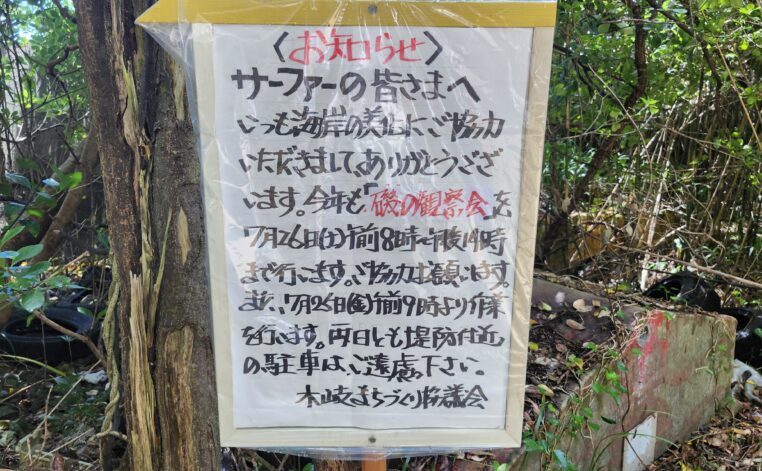 〈お知らせ〉
サーファーの皆さまへ
いつも海岸の美化にご協力
いただきまして、ありがとうござ
います。今年も「磯の観察会」を
7月26日(土)午前8時〜午後14時
まで行います。ご協力お願います。
また、7月25日(金)午前9時より作業
を行います。両日とも堤防付近
の駐車は、ご遠慮下さい。
木岐まちづくり協議会